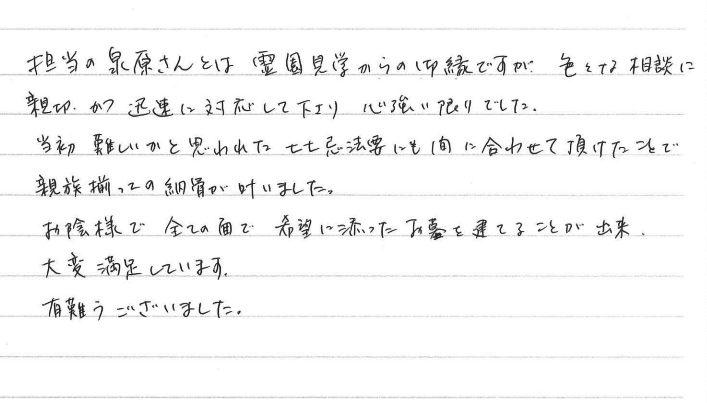 担当の泉原さんとは 霊園見学からの御縁ですが 色々な相談に
親切かつ迅速に対応して下さり 心強い限りでした。
当初 難しいかと思われた七七忌法要にも間に合わせて頂けたことで
親族揃っての納骨が叶いました。
お陰様で 全ての面で 希望に添ったお墓を建てることが出来、
大変満足しています。
有難うございました。